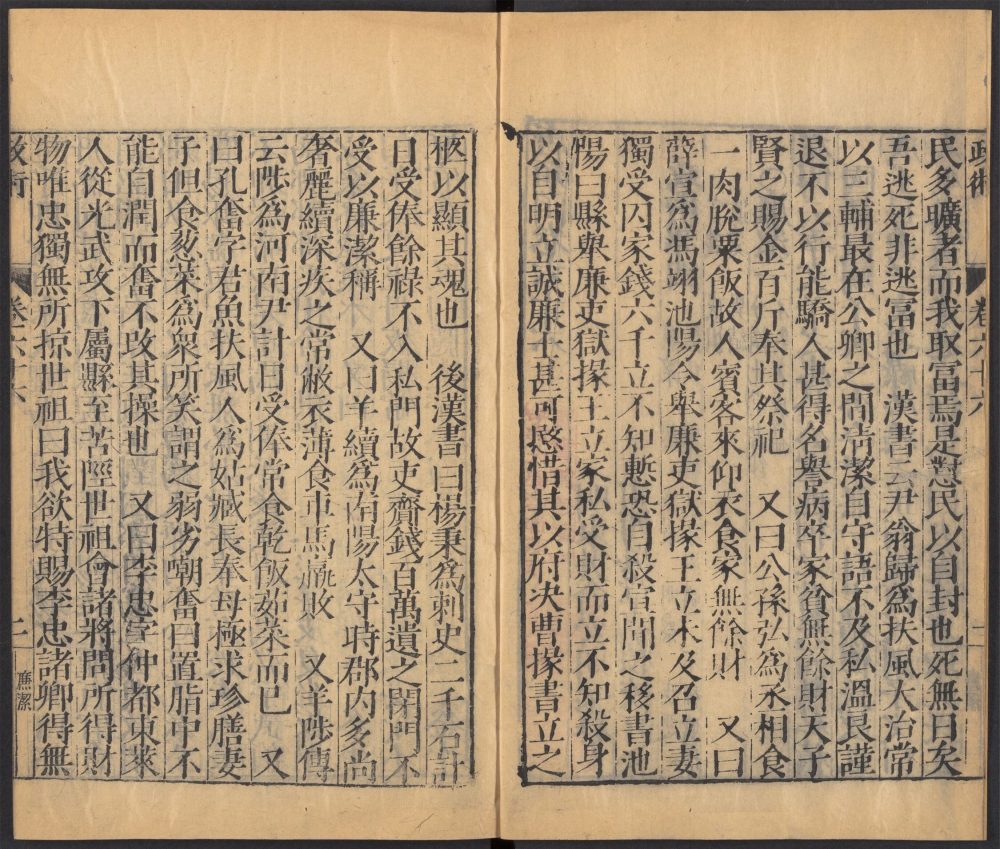 政術
卷六十六
民多曠者而我取富焉是懟民以自封也死無日矣
吾逃死非逃富也　漢書云尹翁歸為扶風大治常
以三輔最在公卿之間清潔自守語不及私溫良謹
退不以行能驕人甚得名譽病卒家貧無餘財天子
賢之賜金百斤奉其祭祀　又曰公孫弘為丞相食
一肉脫粟飯故人賓客來仰衣食家無餘財　又曰
薛宣為馮翊池陽令舉廉吏獄掾王立未及召立妻
獨受囚家錢六千立不知慙恐自殺宣聞之移書池
陽曰縣舉廉吏獄掾王立家私受財而立不知殺身
以自明立誠廉士甚可愍惜其以府決曹掾書立之
柩以顯其魂也　後漢書曰楊秉為刺史二千石計
日受俸餘祿不入私門故吏齎錢百萬遺之閉門不
受以廉潔稱　又曰羊續為南陽太守時郡內多尚
奢麗續深疾之常敝衣薄食車馬羸敗　又羊陟傳
云陟為河南尹計日受俸常食乾飯茹菜而已　又
曰孔奮字君魚扶風人為姑臧長奉母極求珍膳妻
子但食葱菜為衆所笑謂之弱劣嘲奮曰置脂中不
能自潤而奮不改其操也　又曰李忠字仲都東萊
人從光武攻下屬縣至苦陘世祖會諸將問所得財
物唯忠獨無所掠世祖曰我欲特賜李忠諸卿得無
政術
卷六十六
二
廉潔